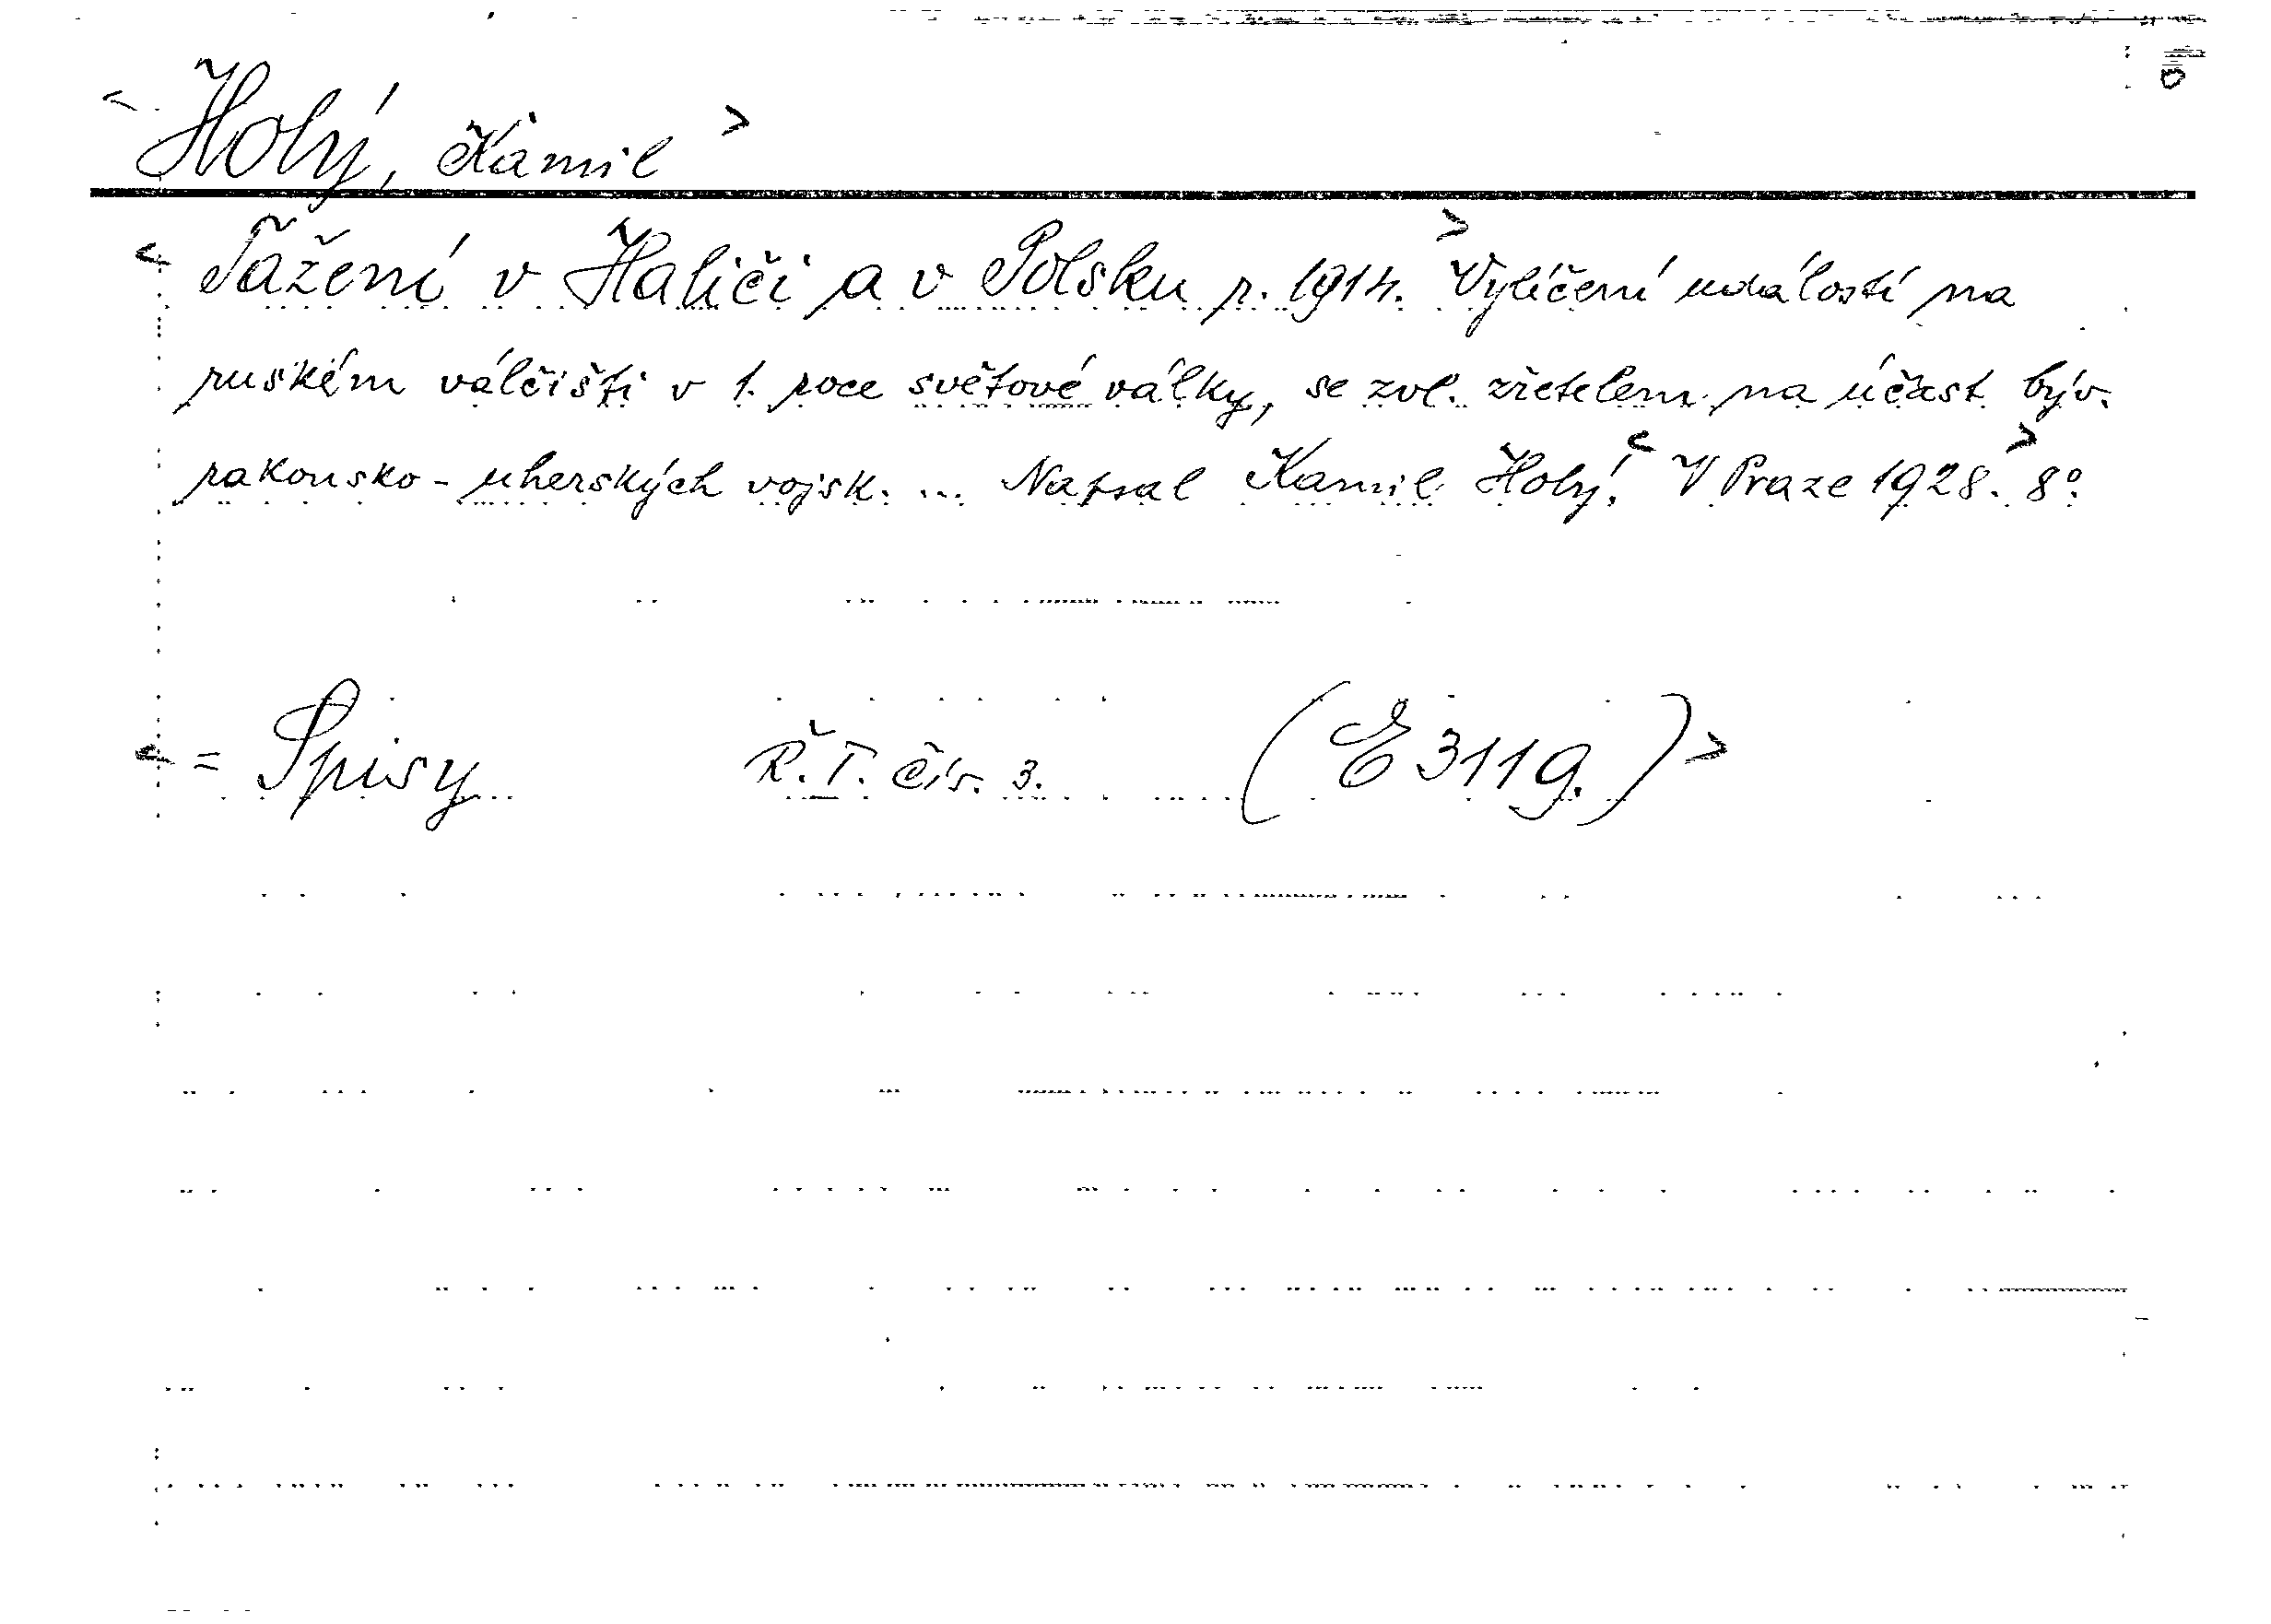 < Holý, Kamil >
< Tažení v Haliči a v Polsku r. 1914. > Vylíčení událostí na
ruském válčišti v 1. roce světové války, se zvl. zřetelem na účast býv.
rakousko-uherských vojsk. ... Napsal Kamil Holý. < V Praze 1928. > 8°.
< = Spisy Ř. T. čís. 3. (E 3119.) >